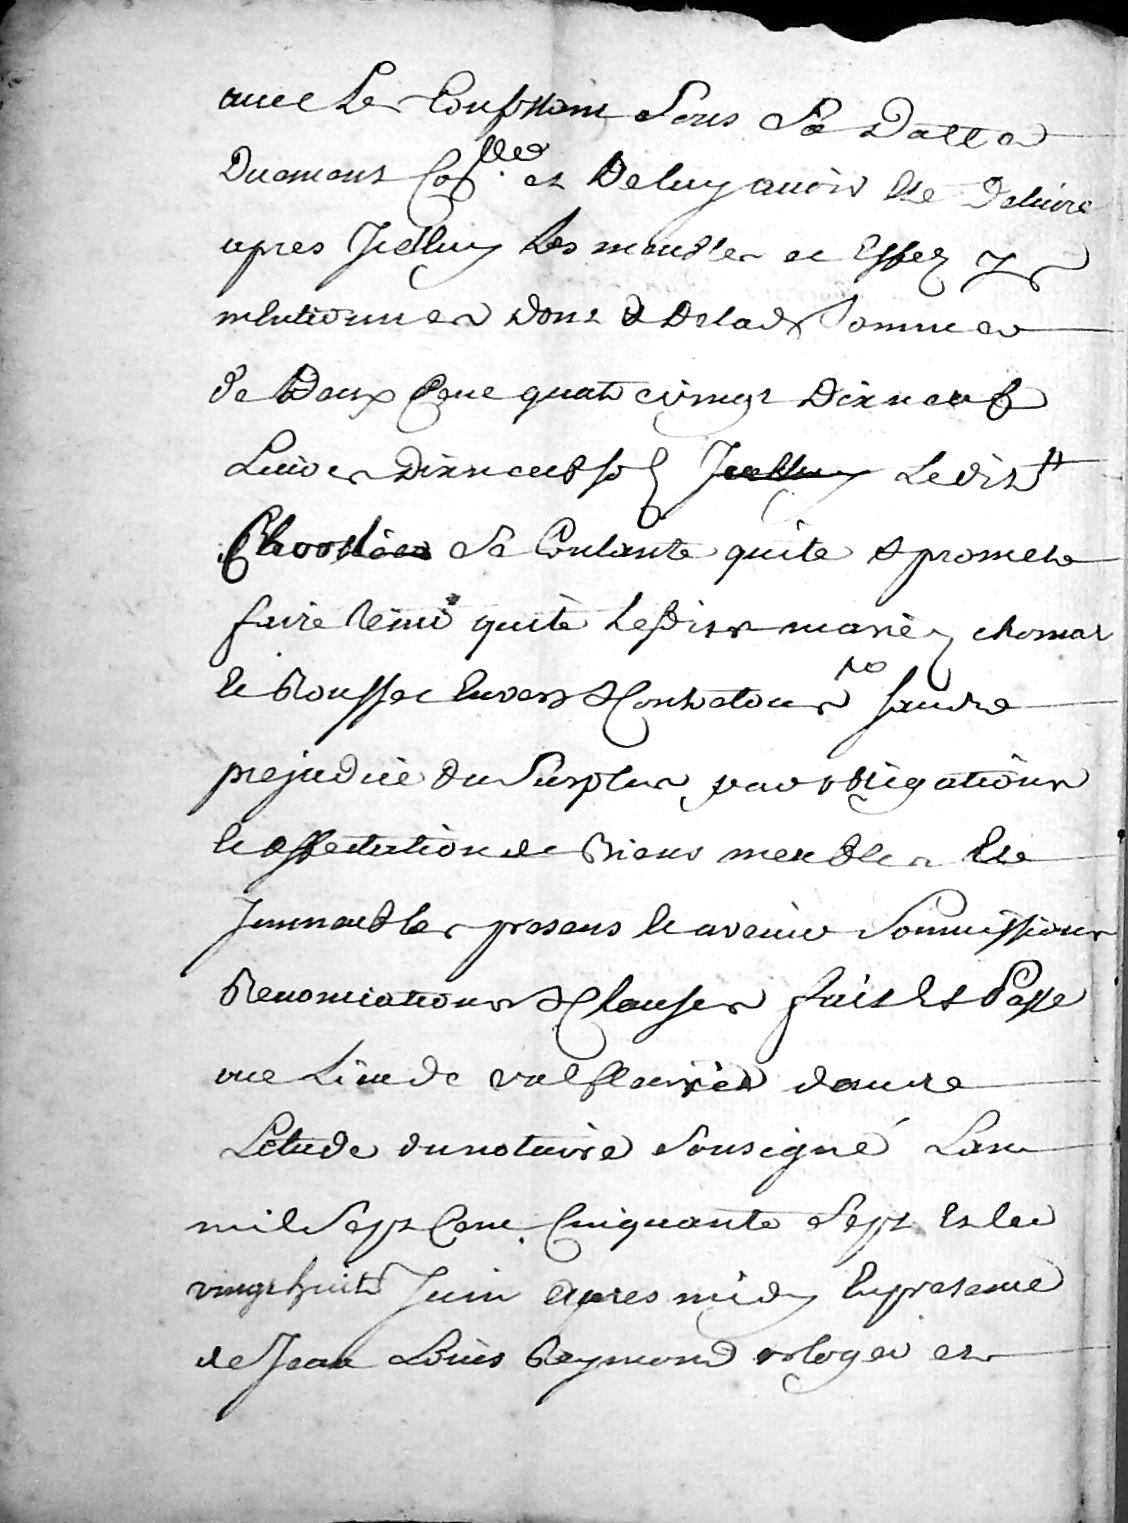 avec Les Sous Sa Datte
Du et De luy avoir Ete Delivré
apres Icelluy Les meubles et Effez y
mentionnes dont & De lad Somme
de Deux Cent quatrevingt Dixneuf
Livres dixneuf sol Ledist
Se Contante quite & promet
faire tenir quite Lesdits mariéz chomat
et Rousset Envers & Contre tous sans
prejudice du Surplus par obligations
et affectation de Biens meubles Et
Immeubles presens et avenir Soumissions
Renonciations & Clauses fait Et Passe
au Lieu de valfleurie dans
Letude du notaire Sousigné Lan
mil Sept Cent Cinquante Sept Et le
vingt huit Juin apres midy En presence
de Jean Louis Reymond orloger et